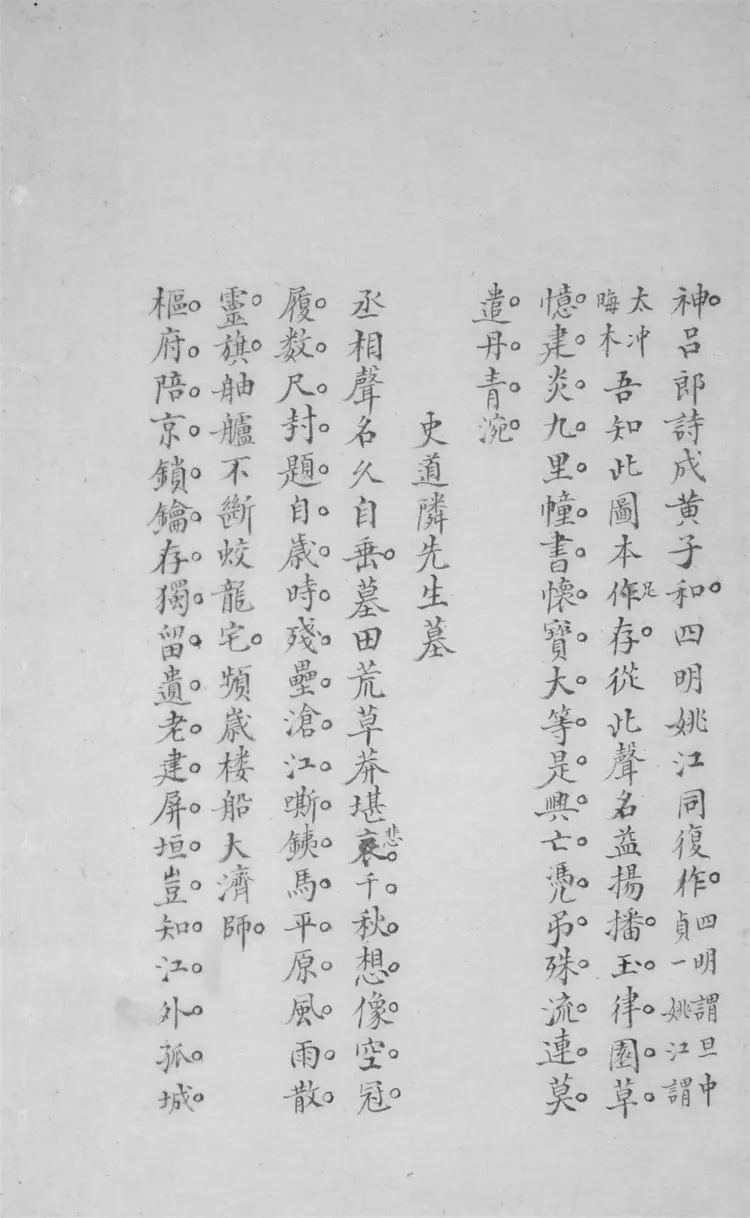 神。呂郎詩成黃子和。四明姚江同復作。四明謂旦中貞一姚江謂
太冲晦木吾知此圖本作足存。從此聲名益揚播。玉。律。園。草。
憶。建。炎。九。里。幢。書。懷。寶。大。等。是。興。亡。憑。吊。殊。流。連。莫。
遣。丹。青。涴。
史道隣先生墓
丞相聲名久自垂。墓田荒草莽堪哀悲。千。秋。想。像。空。冠。
履。数。尺。封。題。自。歲。時。殘。壘。滄。江。嘶。鉄。馬。平。原。風。雨。散。
靈。旗。舳艫不斷蛟龍宅。頻歲楼船大濟師。
樞。府。陪。京。鎖。鑰。存。獨。留。遺。老。建。屏。垣。豈。知。江。外。孤。城。